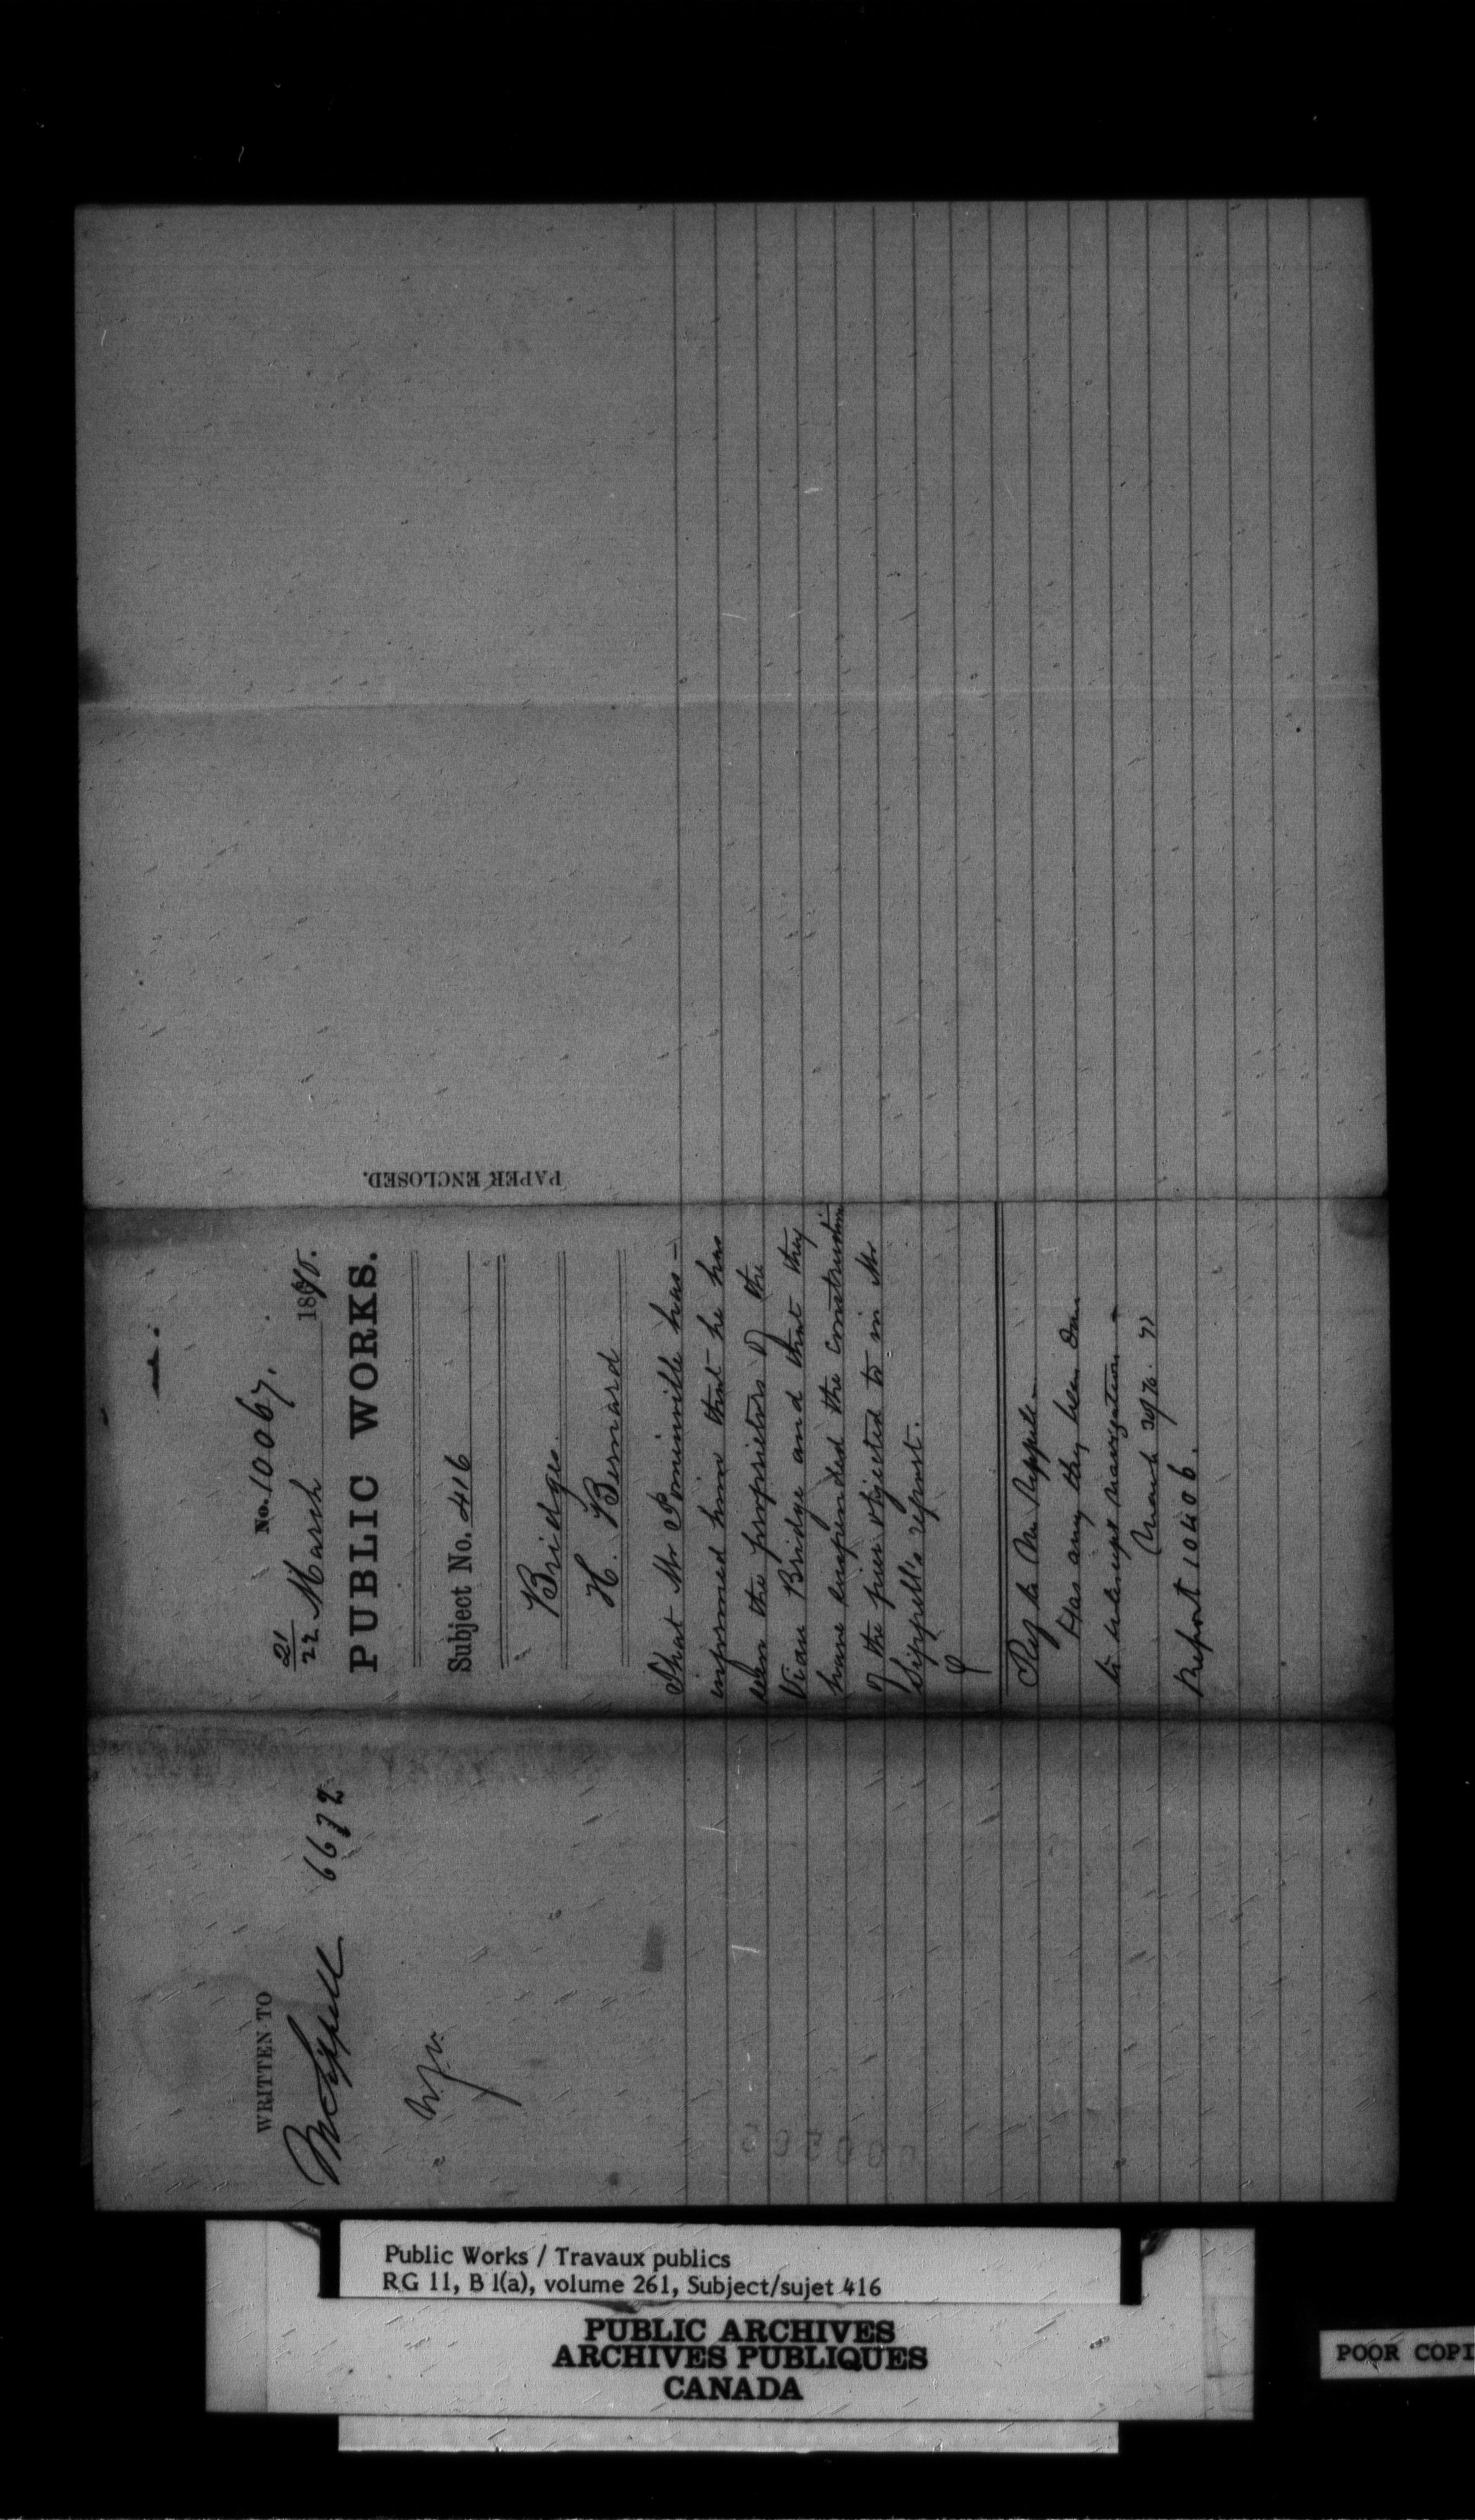 No. 10067.
21
22 March 1870.
PUBLIC WORKS.
Subject No. 416
Bridges.
H. Bernard
That Mr Pominville has
informed him that he has
seen the proprietors of the
Viau Bridge and that they
have suspended the construction
of the pier objected to in Mr
Sippell's report.
Ref to Mr Sippell
Has any thing been done
to interrupt navigation
March 29/70.
Report 10406.
PAPER ENCLOSED.
WRITTEN TO
Mr Sippell 6672
Public Works / Travaux publics
RG 11, B 1(a), volume 261, Subject/sujet 416
PUBLIC ARCHIVES
ARCHIVES PUBLIQUES
CANADA
POOR COPI